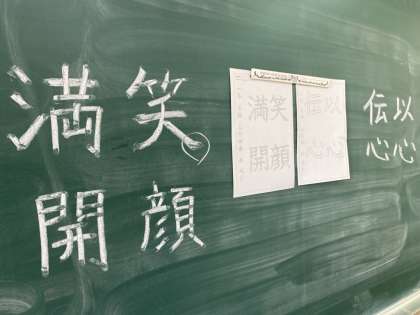 以心
伝心
以心
伝心
笑顔
満開
笑顔
満開